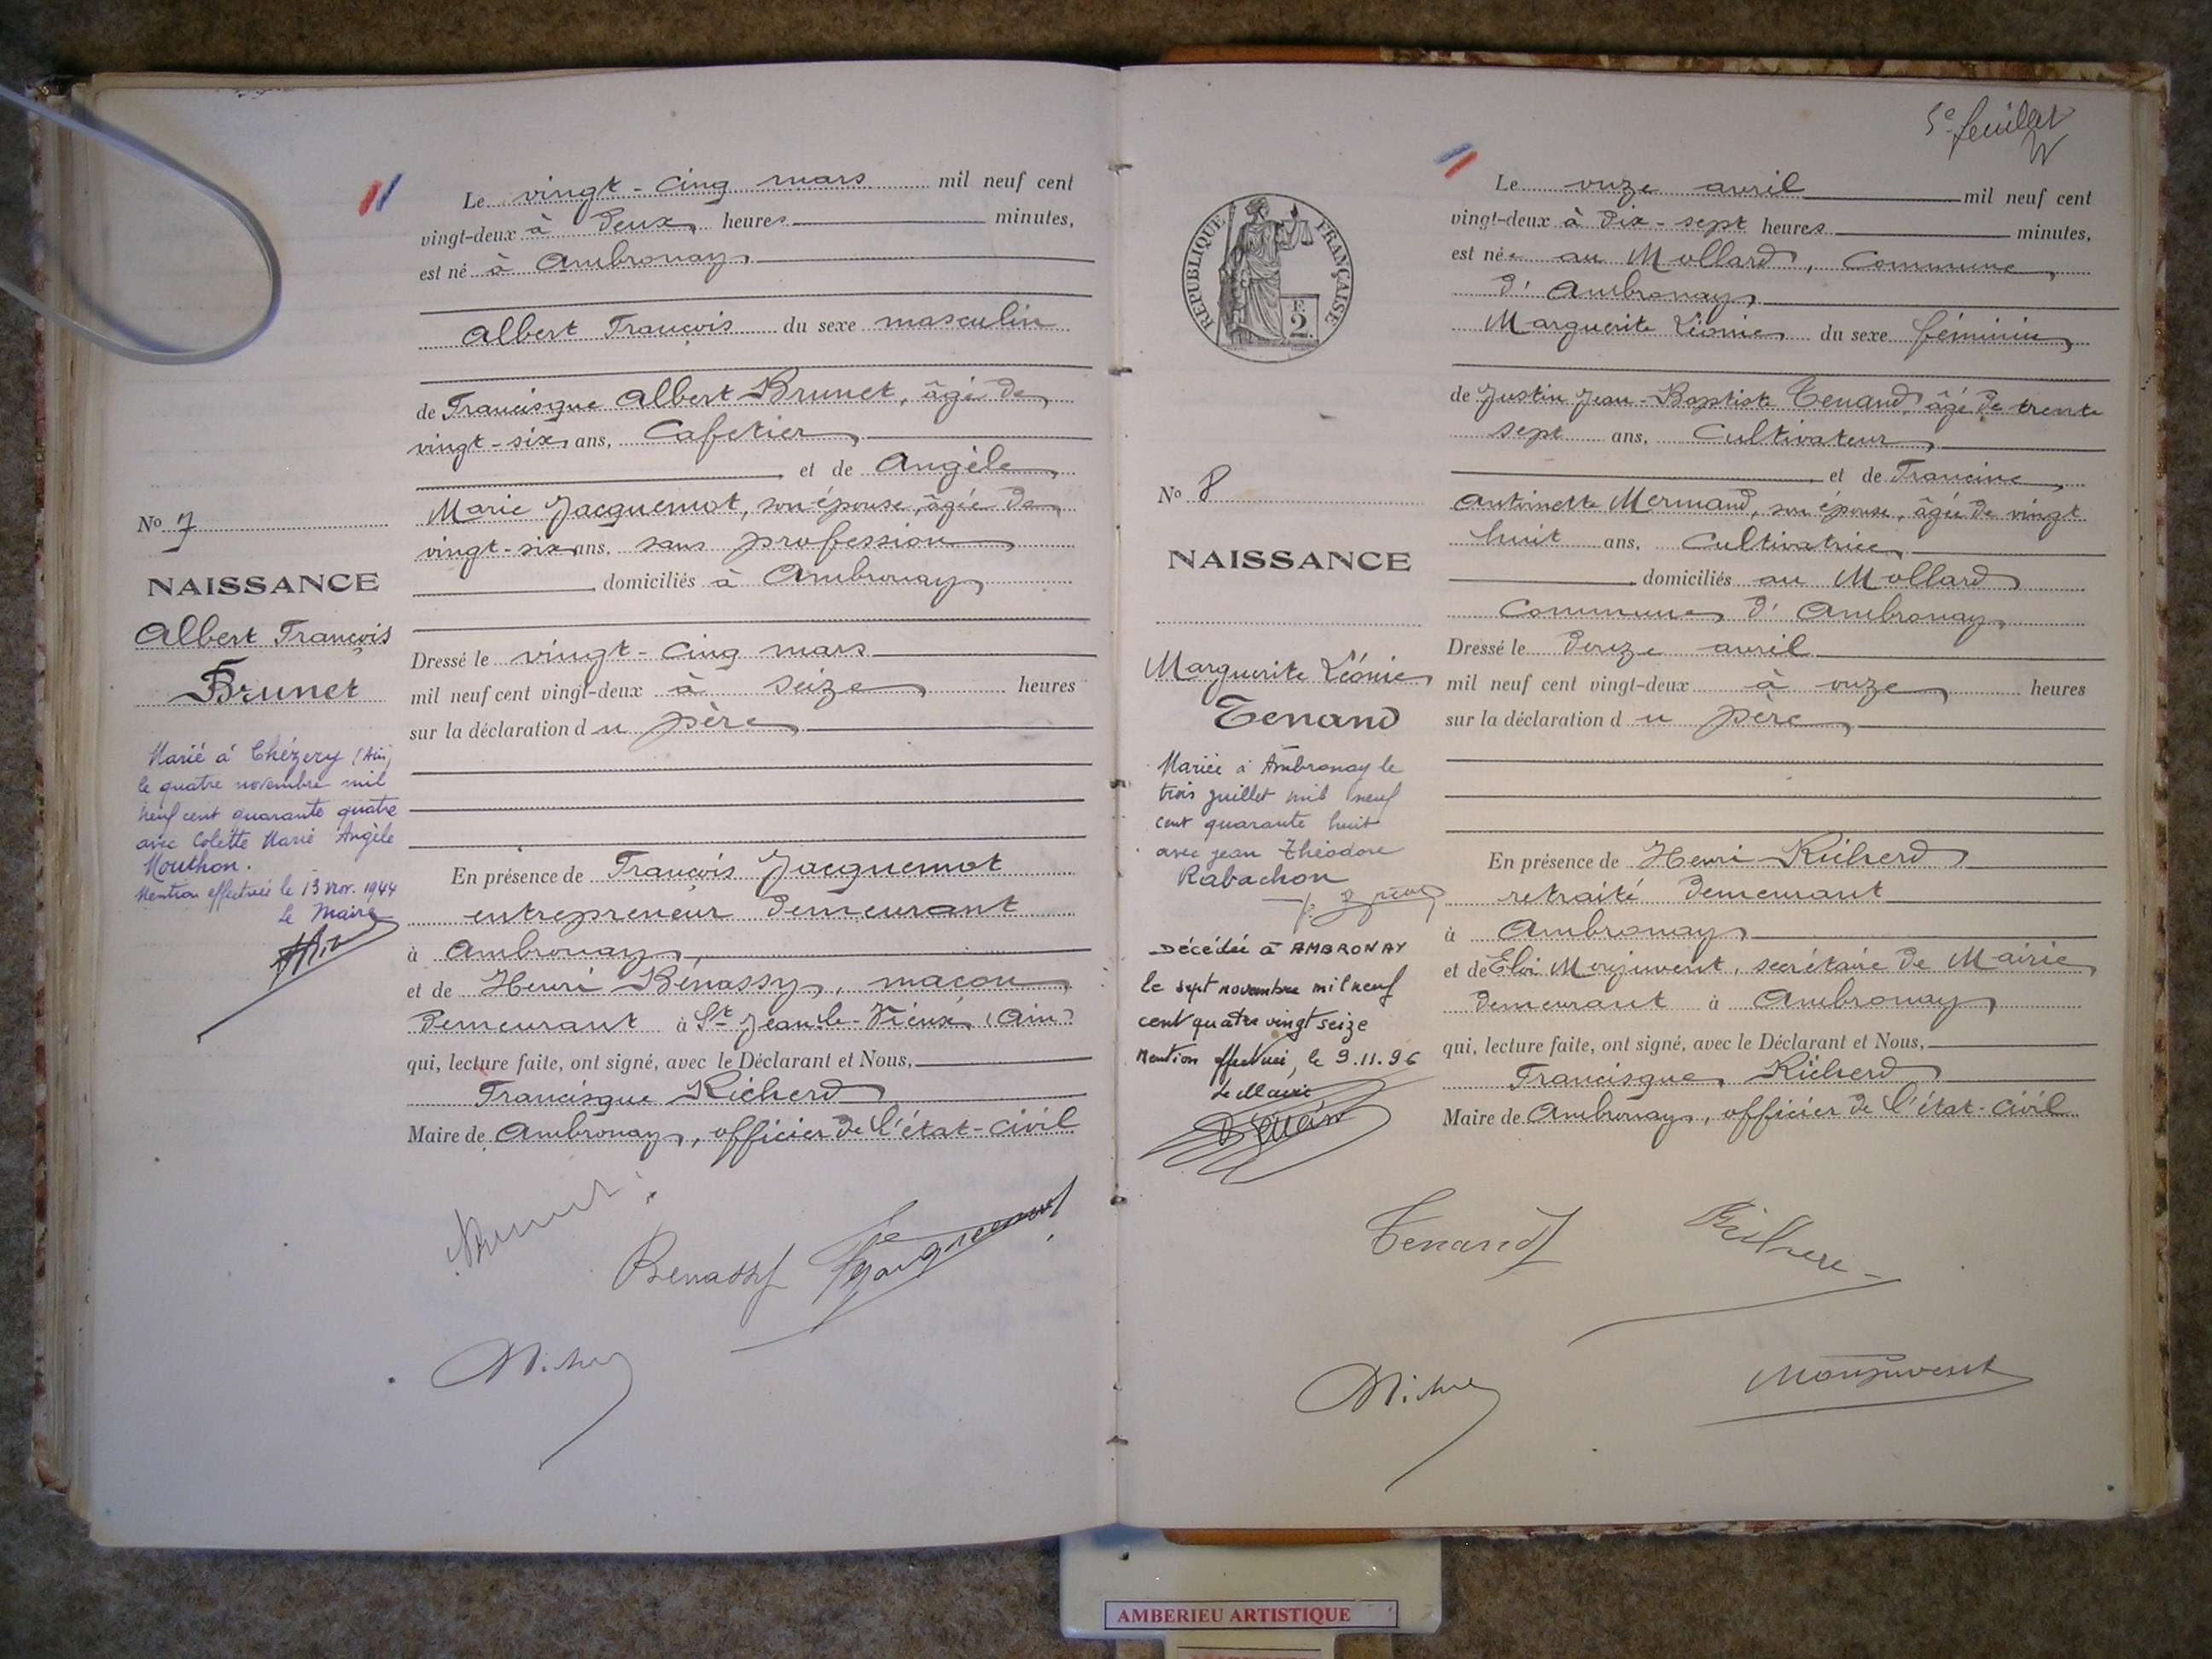 No 7
NAISSANCE
Albert François
Brunet
Marié à Chézery (Ain)
le quatre novembre mil
neuf cent quarante quatre
avec Colette Marie Angèle
Mouthon.
Mention effectuée le 13 nov. 1944
Le Maire
Le vingt-cinq mars mil neuf cent
vingt-deux à deux heures minutes,
est né à Ambronay
Albert François du sexe masculin
de Francisque Albert Brunet, âgé de
vingt-six ans, Cafetier
et de Angèle
Marie Jacquemot, son épouse, âgée de
vingt-six ans, sans profession
domiciliés à Ambronay
Dressé le vingt-cinq mars
mil neuf cent vingt-deux à seize heures
sur la déclaration du père
En présence de François Jacquemot
entrepreneur demeurant
à Ambronay
et de Henri Bénassy, maçon
demeurant à St Jean-le-Vieux (Ain)
qui, lecture faite, ont signé, avec le Déclarant et Nous,
Francisque Richerd
Maire de Ambronay, officier de l'état-civil
Brunet
Benassy Jacquemot
5e feuillet
RÉPUBLIQUE FRANÇAISE
F.
2.
No 8
NAISSANCE
Marguerite Léonie
Tenand
Mariée à Ambronay le
trois juillet mil neuf
cent quarante huit
avec Jean Théodore
Rabachon
Décédée à AMBRONAY
le sept novembre mil neuf
cent quatre vingt seize
Mention effectuée, le 9.11.96
Le Maire
Le onze avril mil neuf cent
vingt-deux à dix-sept heures minutes,
est née au Mollard, Commune
d'Ambronay
Marguerite Léonie du sexe féminin
de Justin Jean-Baptiste Tenand, âgé de trente
sept ans, Cultivateur
et de Francine
Antoinette Mermand, son épouse, âgée de vingt
huit ans, Cultivatrice
domiciliés au Mollard
Commune d'Ambronay
Dressé le douze avril
mil neuf cent vingt-deux à onze heures
sur la déclaration du père
En présence de Henri Richerd
retraité demeurant
à Ambronay
et de Eloi Monjuvent, secrétaire de Mairie
demeurant à Ambronay
qui, lecture faite, ont signé, avec le Déclarant et Nous,
Francisque Richerd
Maire de Ambronay, officier de l'état-civil
Tenand
Monjuvent
AMBERIEU ARTISTIQUE